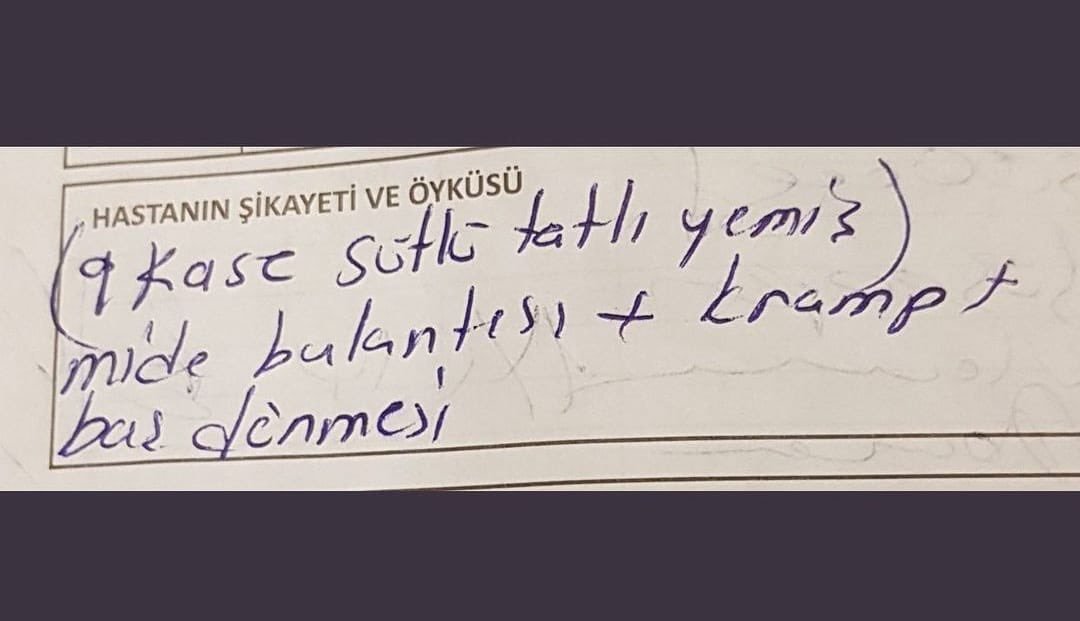 HASTANIN ŞİKAYETİ VE ÖYKÜSÜ
(9 Kase sütlü tatlı yemiş)
mide bulantısı + kramp +
baş dönmesi